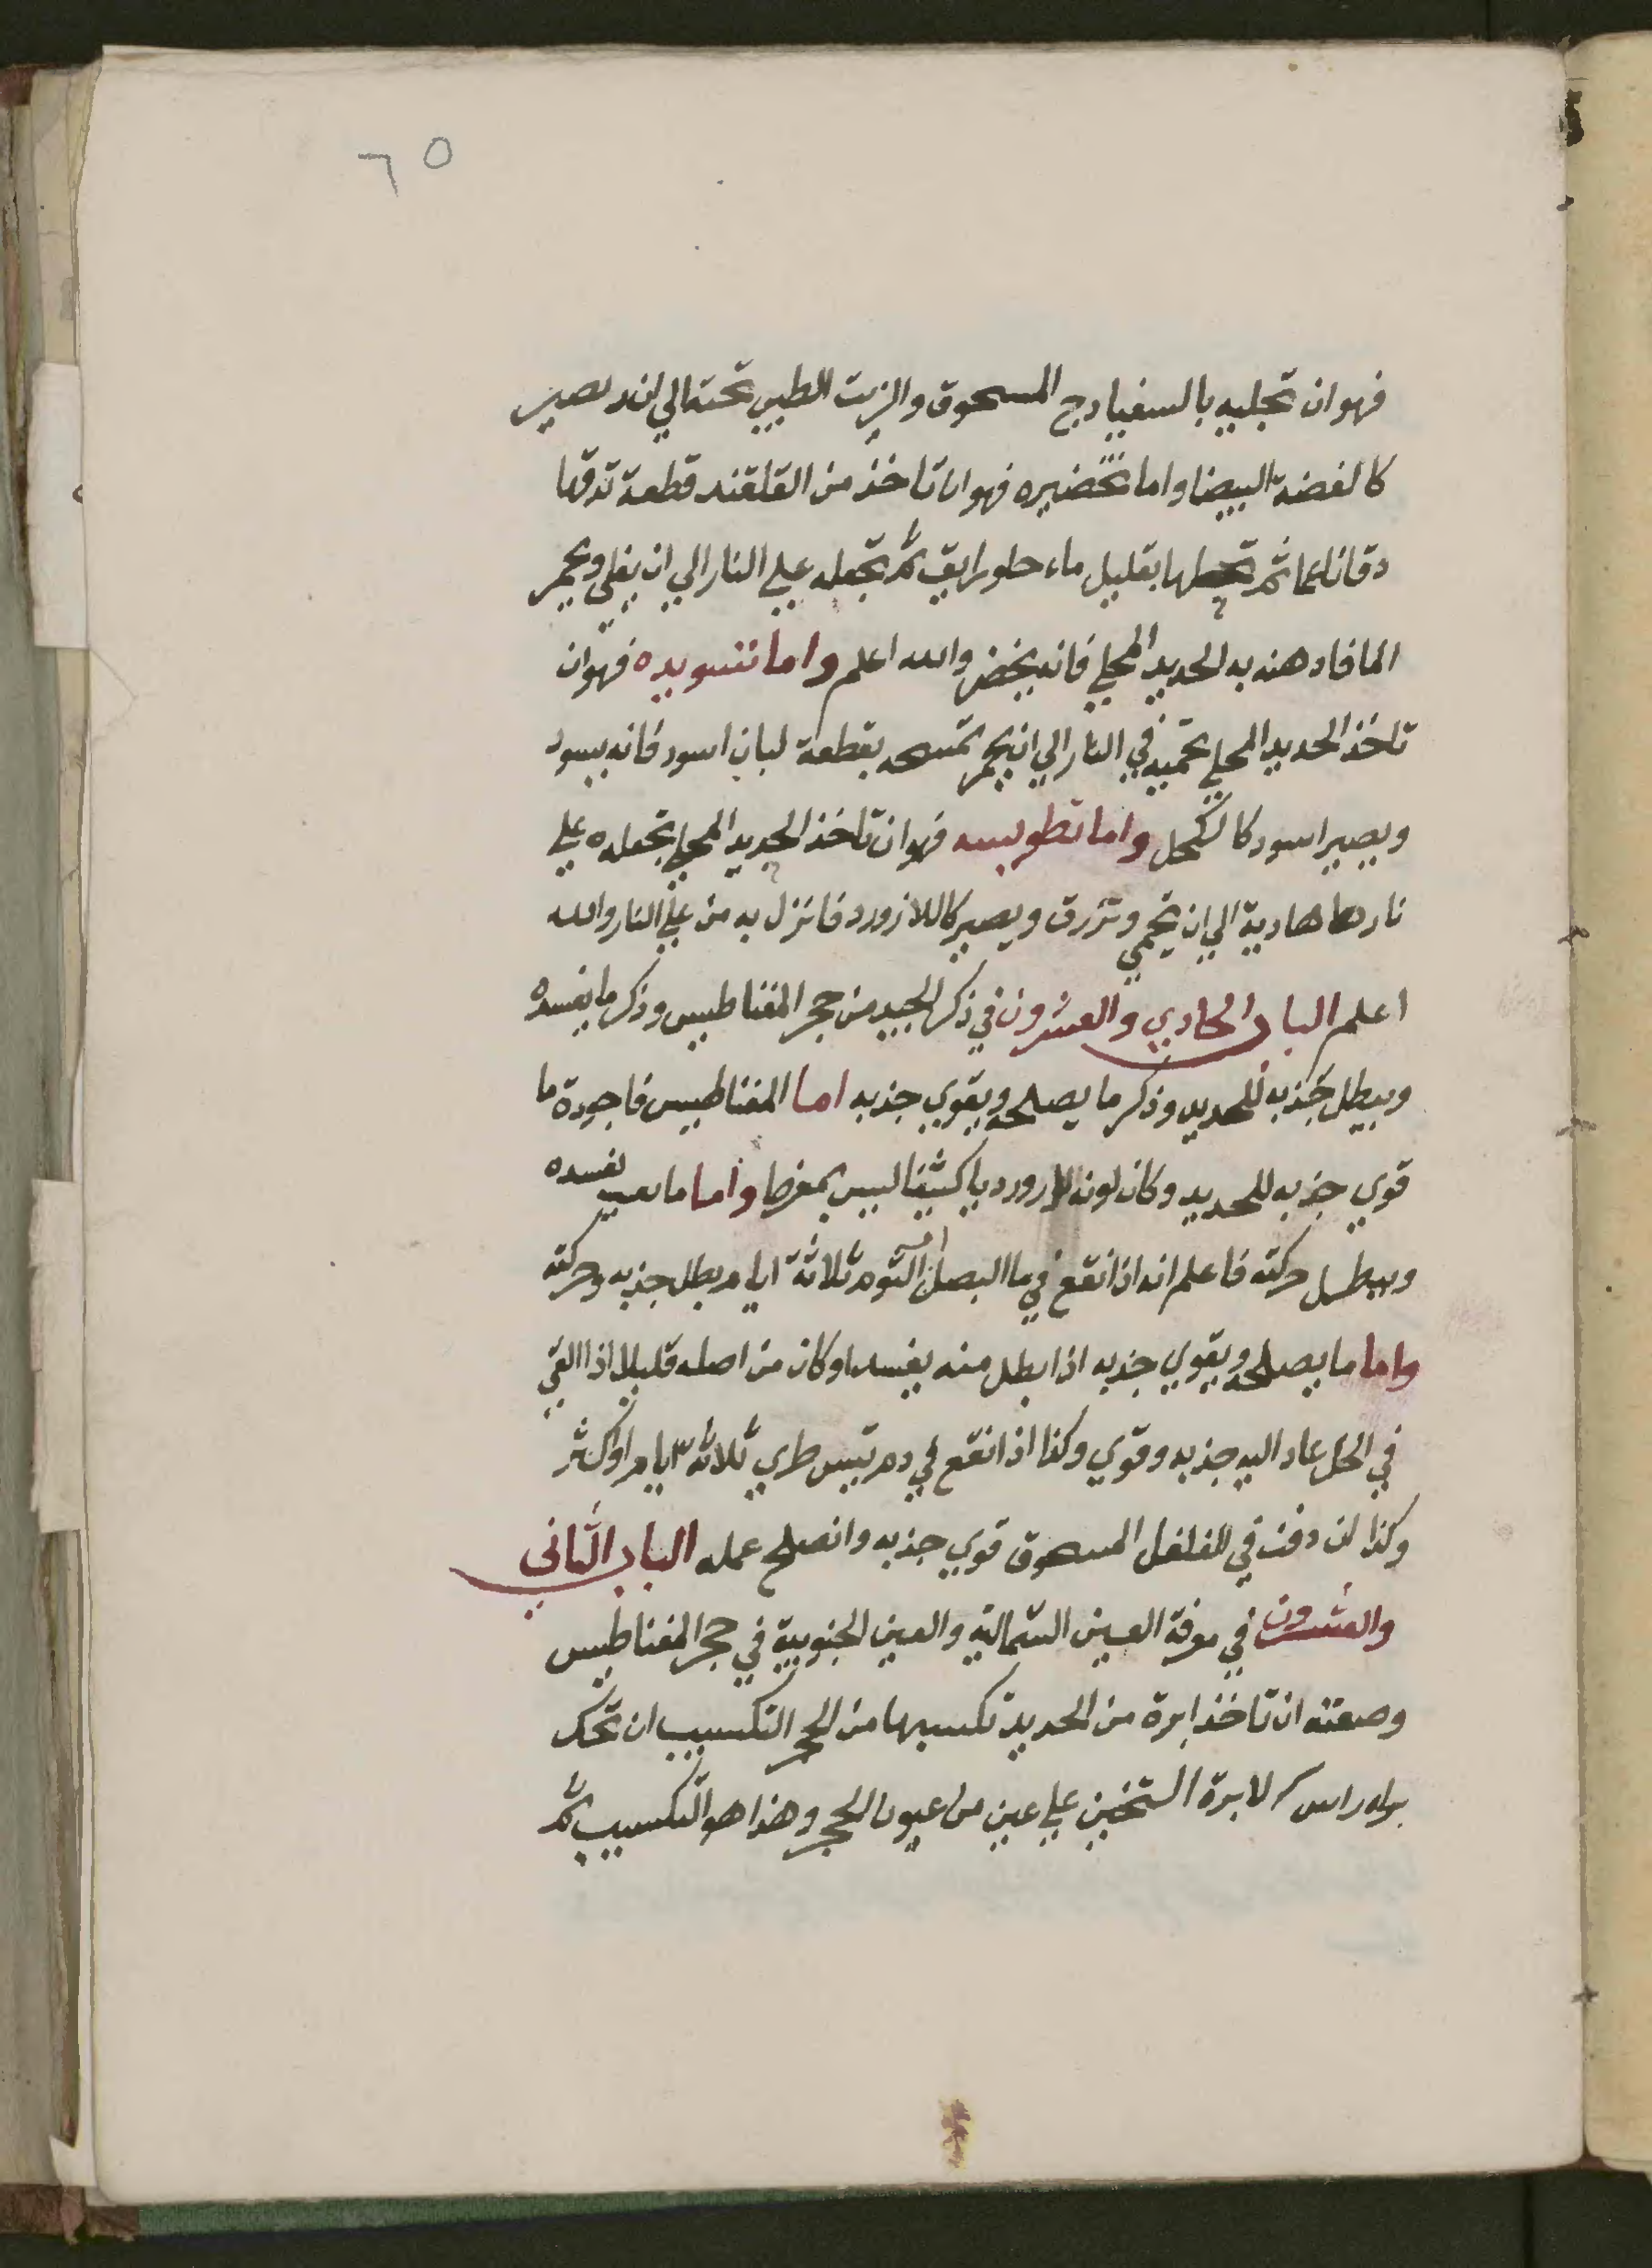 ٦٥
فهو ان تجليه بالسفيادج المسحوق والزيت الطيب تحته الي انه يصير
كالفضة البيضا واما تخضيره فهو ان تاخذ من القلقند قطعة تدقها
دقا ناعما ثم تحطها بقليل ماء حلو رايق ثم تجعله علي النار الي ان يغلي ويحمر
الما فادهنه به الحديد المجلي فانه يخضر والله اعلم واما تسويده فهو ان
تاخذ الحديد المجلي تحميه في النار الي ان يحمر تمسحه بقطعة لبان اسود فانه يسود
ويصير اسود كالكحل واما تطويسه فهو ان تاخذ الحديد المجلي تجعله علي
نار هادية الي ان تحمي وتزرق ويصير كاللازورد فانزل به من علي النار والله
اعلم الباب الحادي والعشرون في ذكر الجيد من حجر المغناطيس وذكر ما يفسده
ويبطل جذبه للحديد وذكر ما يصلحه ويقوي جذبه اما المغناطيس فاجوده ما
قوي جذبه للحديد وكان لونه لازورديا كثيفا ليس بمفرط واما ما يفسده
ويبطل حركته فاعلم انه اذا نقع في ما البصل او التوم ثلاثة ايام بطل جذبه وحركته
واما ما يصلحه ويقوي جذبه اذا بطل منه يفسد او كان من اصله قليلا اذا القي
في الخل عاد اليه جذبه وقوي وكذا اذا نقع في دم تيس طري ثلاثة ايام او اكثر
وكذا ان دفن في الفلفل المسحوق قوي جذبه وانصلح عمله الباب الثاني
والعشرون في معرفة العين الشمالية والعين الجنوبية في حجر المغناطيس
وصفته ان تاخذ ابرة من الحديد تكسبها من الحجر التكسيب ان تحك
براس الابرة الستخين علي عين من عيون الحجر وهذا هو التكسيب ثم